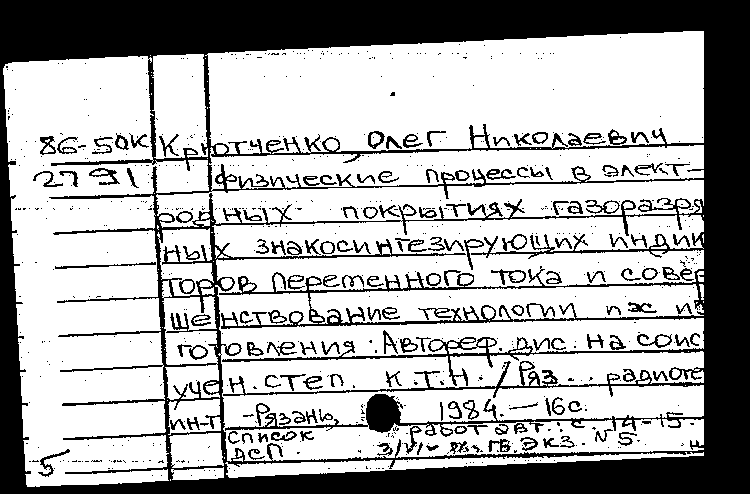 86-50К Крютченко, Олег Николаевич
2791 Физические процессы в элект-
родных покрытиях газоразря
ных знакосинтезирующих индик
торов переменного тока и совер
шенствование технологии их из
готовления: Автореф. дис. на соис
учен. степ. к.т.н. / Ряз. радиоте
ин-т -Рязань, 1984. — 16с.
Список работ авт.: с. 14-15.
ДСП. ГБ. ЭКЗ. N5.
5